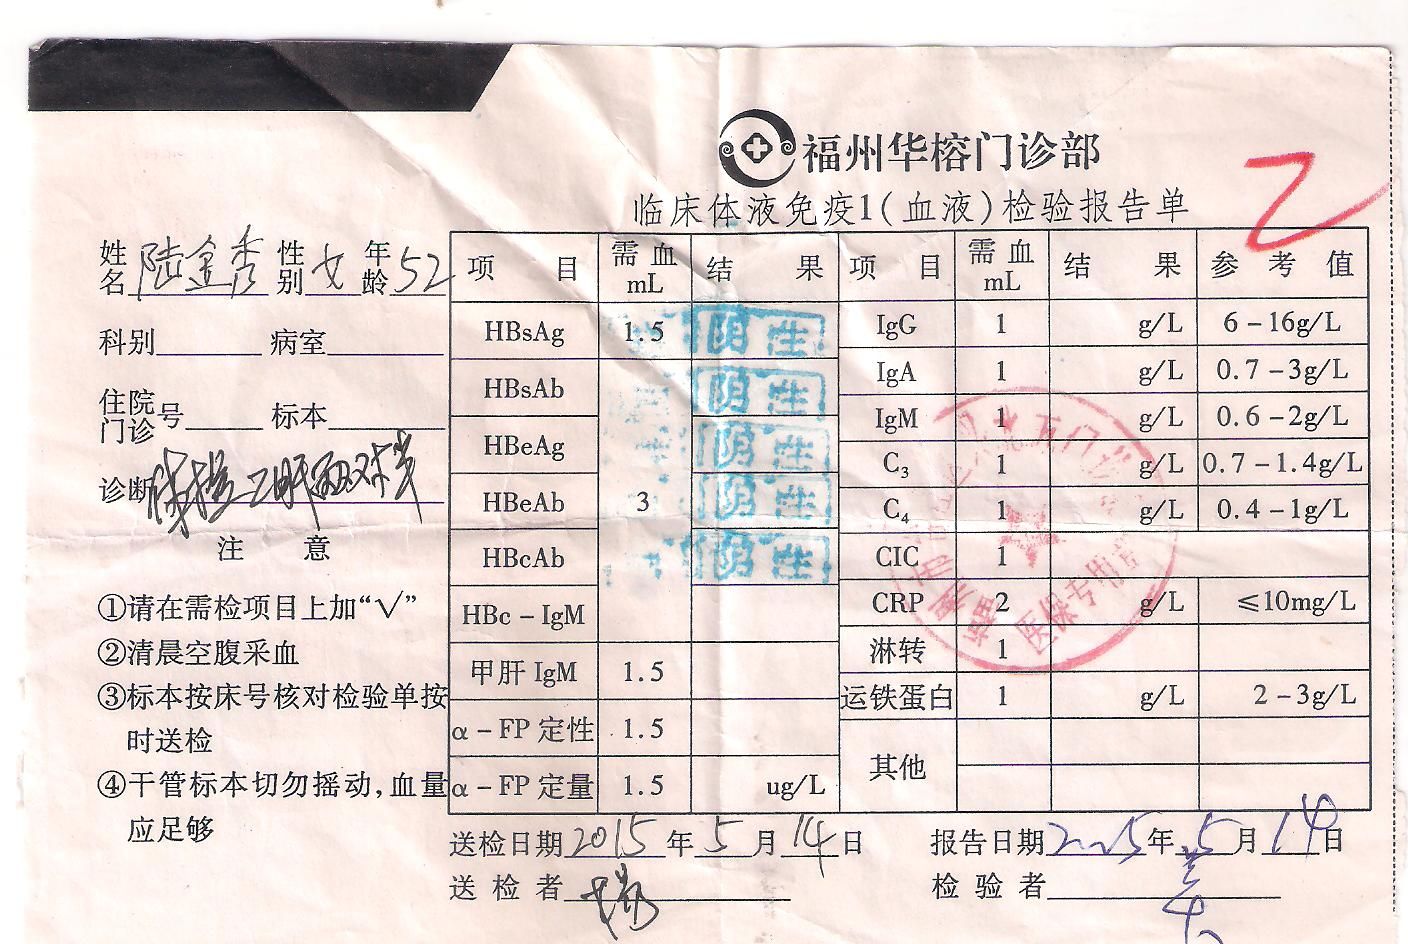 福州华榕门诊部
临床体液免疫1(血液)检验报告单
姓名 陆金秀 性别 女 年龄 52
科别 病室
住院门诊号 标本
诊断 体检乙肝两对半
注 意
①请在需检项目上加“√”
②清晨空腹采血
③标本按床号核对检验单按
时送检
④干管标本切勿摇动,血量
应足够
项 目 需血mL 结 果 项 目 需血mL 结 果 参 考 值
HBsAg 1.5 阴性 IgG 1 g/L 6-16g/L
HBsAb 阴性 IgA 1 g/L 0.7-3g/L
HBeAg 阴性 IgM 1 g/L 0.6-2g/L
C3 1 g/L 0.7-1.4g/L
HBeAb 3 阴性 C4 1 g/L 0.4-1g/L
HBcAb 阴性 CIC 1
HBc-IgM CRP 2 g/L ≤10mg/L
淋转 1
甲肝IgM 1.5 运铁蛋白 1 g/L 2-3g/L
α-FP定性 1.5 其他
α-FP定量 1.5 ug/L
医保专用章
送检日期 2015 年 5 月 14 日 报告日期 2015 年 5 月 14 日
送检者 检验者